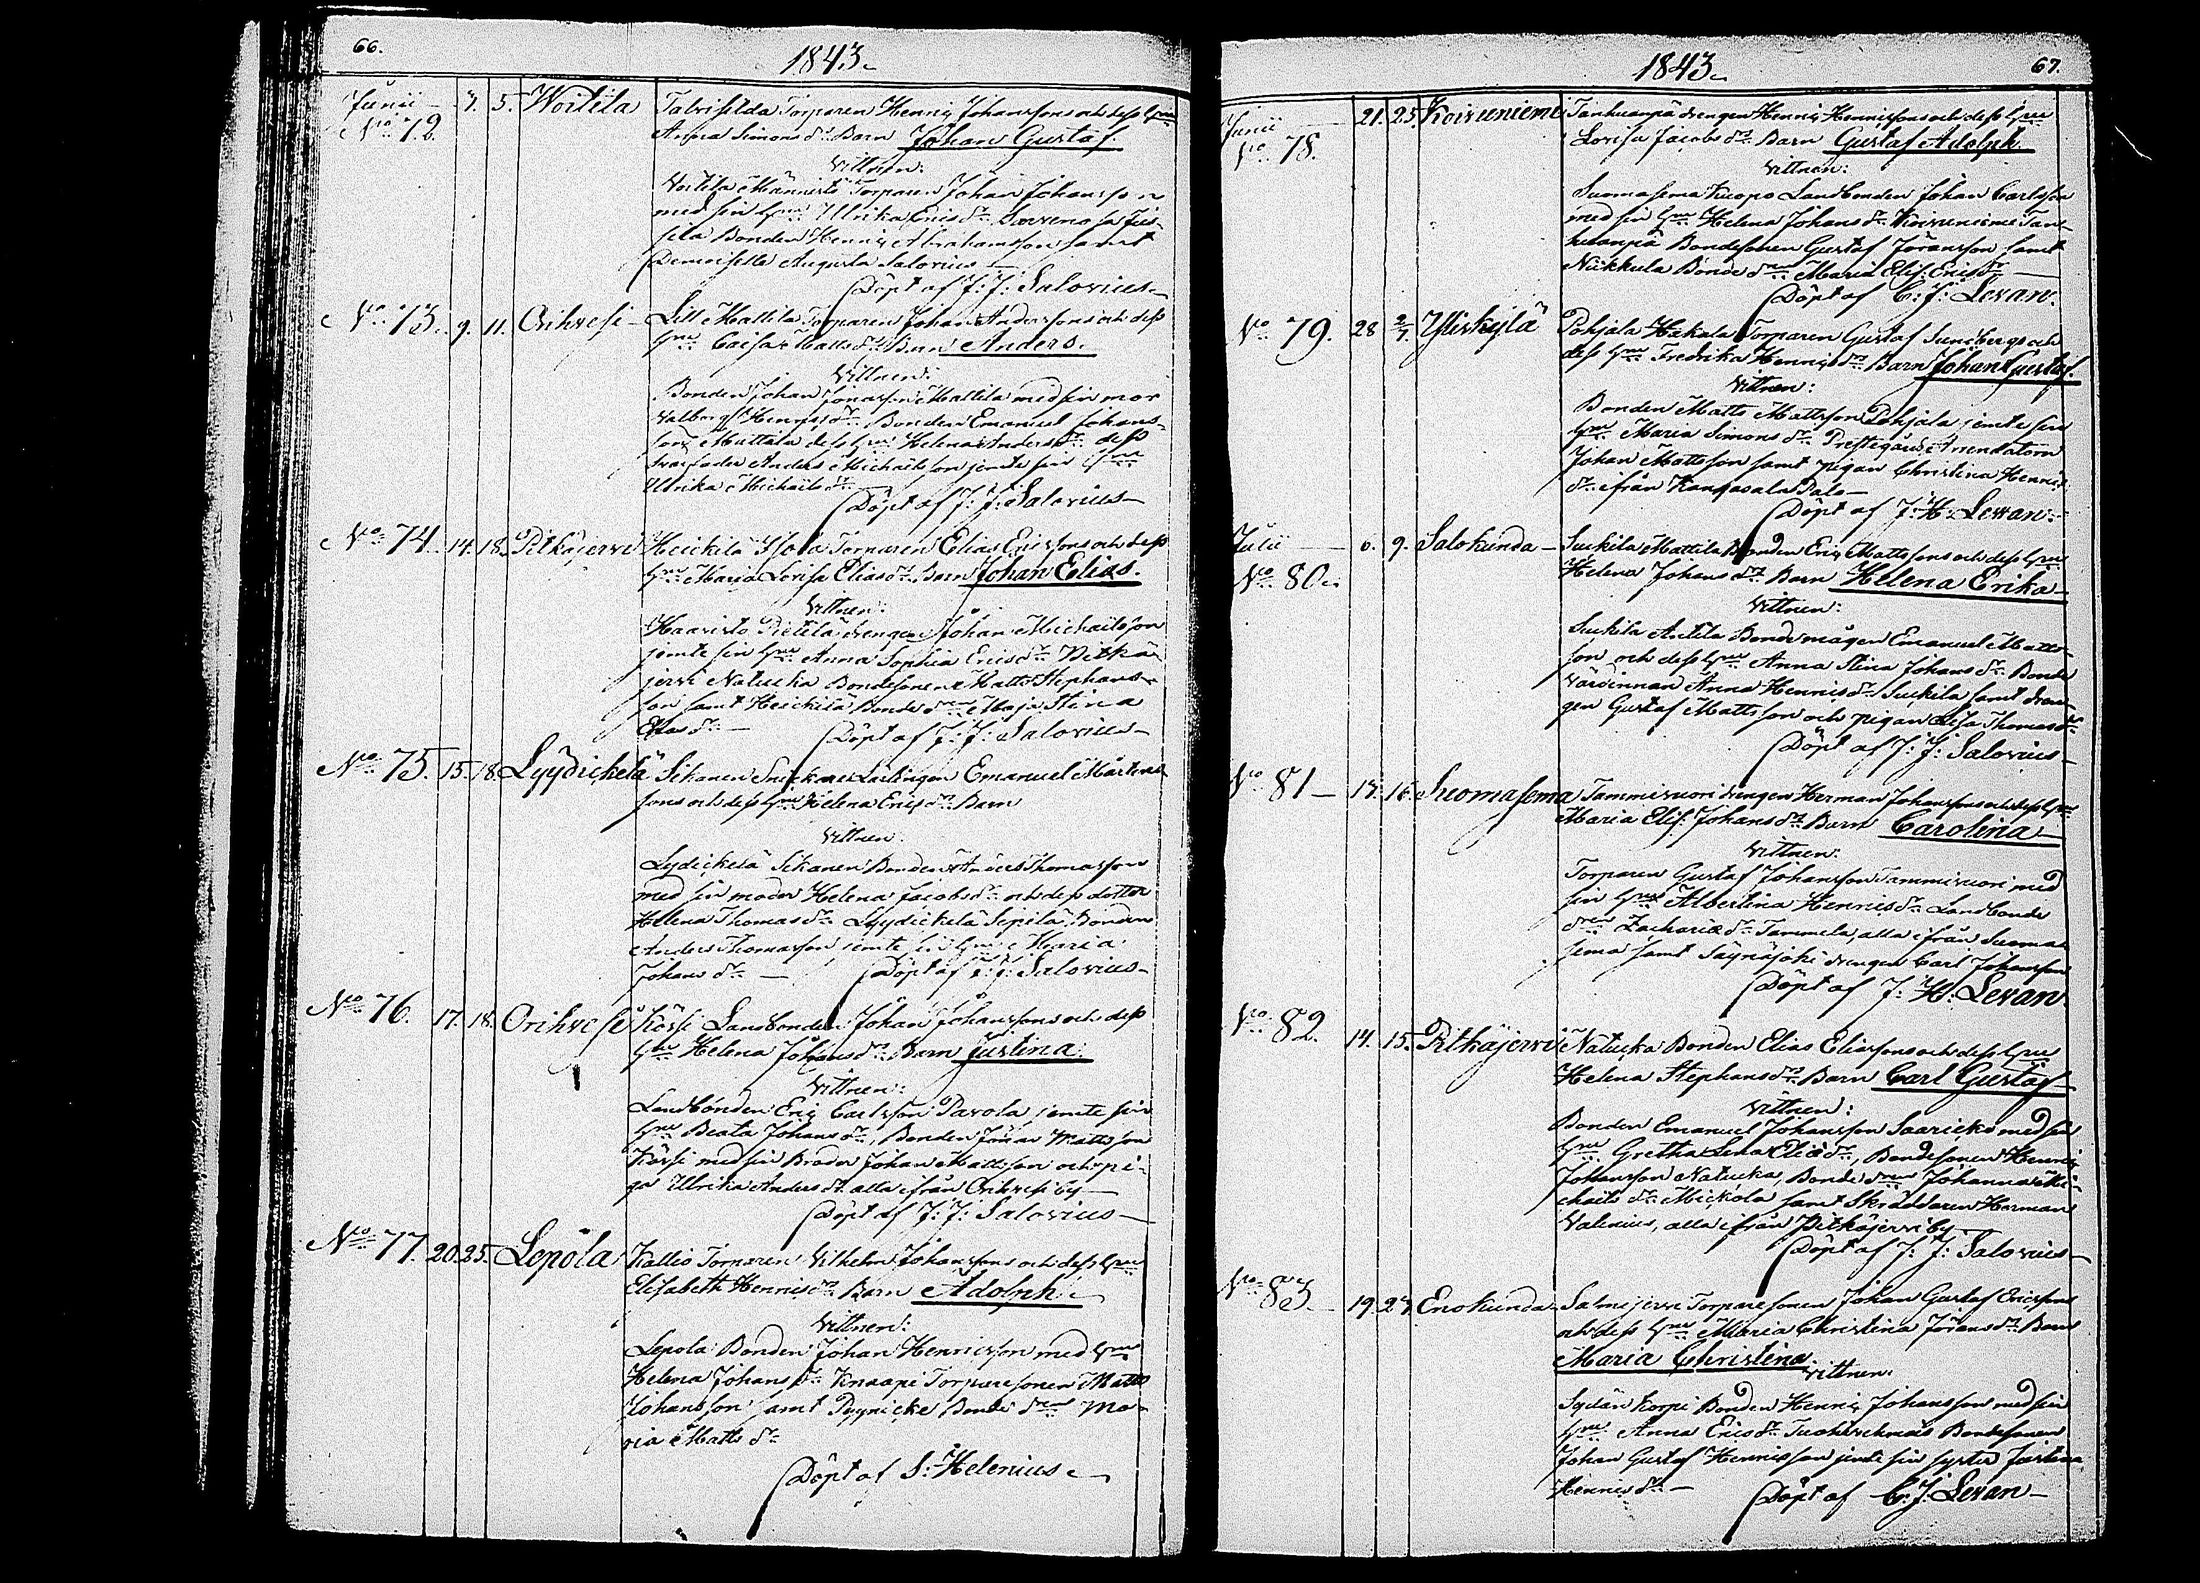 66.
1843.
Junii 3. 5. Woitila Talvisilda Torparen Henric Johanssons och dess Hu
No 72. Anna Simons dr Barn Johan Gustaf
Vittnen:
Voitila Männistö Torparen Johan Johansson
med sin Hu Ulrika Erics dr
sila Bonden Henric Abrahamsson samt
Demoiselle Augusta Salovius
Döpt af J: J: Salovius
No 73. 9. 11. Orihvesi Lill Mattila Torparen Johan Anderssons och dess
Hu Caisa Matts dr Barn Anders.
Vittnen:
Bonden Johan Jonasson Mattila med sin mor
Valborg Henrics dr Bonden Emanuel Johans-
son Mattila dess Hu Helena Anders dr dess
svärfader Anders Michailsson jemte sin Hu
Ulrika Michails dr
Döpt af J: J: Salovius
No 74. 14. 18. Pitkäjervi Heickilä Torparen Elias Ericssons och dess
Hu Maria Lovisa Elias dr Barn Johan Elias.
Vittnen:
Haavisto Pietilä drengen Johan Michailsson
jemte sin Hu Anna Sophia Erics dr Pitkä-
jervi Natucka Bondesonen Matts Stephans-
son samt Heickilä Bonde dren Maja Stina
Elias dr
Döpt af J: J: Salovius
No 75. 15. 18. Lyydickelä Sikanen Snickare Lärlingen Emanuel Mårtens-
sons och dess Hu Helena Erics dr Barn
Vittnen.
Lydickelä Sikanen Bonden Anders Thomasson
med sin moder Helena Jacobs dr och dess dotter
Helena Thomas dr Lyydickelä Sepilä Bonden
Anders Thomasson jemte sin Hu Maria
Johans dr Döpt af J: J: Salovius
No 76. 17. 18. Orihvesi Körsi Landbonden Johan Johanssons och dess
Hu Helena Johans dr Barn Justina.
Vittnen:
Landbonden Eric Carlsson Pavola, jemte sin
Hu Beata Johans dr, Bonden Jöran Mattsson
Körsi med sin Broder Johan Mattsson och pi-
ga Ulrika Anders dr alla ifrån Orihvesi by
Döpt af J: J: Salovius
No 77. 20. 25. Lepola Kallio Torparen Vilhelm Johanssons och dess Hu
Elisabeth Henrics dr Barn Adolph.
Vittnen:
Lepola Bonden Johan Henricsson med Hu
Helena Johans dr Knaapi Torparesonen Matts
Johansson samt Pyynicke Bonde dren Ma-
ria Matts dr
Döpt af S: Helenius
1843. 67.
Junii 21. 25. Koivuniemi Tanhuanpä drengen Henric Henricssons och dess Hu
No 78. Lovisa Jacobs dr Barn Gustaf Adolph.
Vittnen:
Suomasema Kuopo Landbonden Johan Carlsson
med sin Hu Helena Johans dr Koivuniemi Tan-
huanpä Bondesonen Gustaf Jöransson samt
Nickkula Bonde dren Maria Elis: Erics dr
Döpt af C: J: Levan.
No 79. 28 2/7. Yliskylä Pohjala Hakala Torparen Gustaf Sundbergs och
dess Hu Fredrika Henrics dr Barn Johan Gustaf.
Vittnen:
Bonden Matts Mattsson Pohjala jemte sin
Hu Maria Simons dr Prestegårds Arrendatorn
Johan Mattsson samt pigan Christina Henrics
dr ifrån Kangasala Palo
Döpt af J: H: Levan.
Julii 6. 9. Salokunda Suckila Mattila Bonden Eric Mattssons och dess Hu
No 80. Helena Johans dr Barn Helena Erika
Vittnen:
Suckila Antila Bondemågen Emanuel Matts-
son och dess Hu Anna Stina Johans dr Bonde
värdinnan Anna Henrics dr Suckila samt dren-
gen Gustaf Mattsson och pigan Lisa Thomas dr
Döpt af J: J: Salovius
No 81 13. 16. Suomasema Tammivuori drengen Herman Johanssons och dess Hu
Maria Elis: Johans dr Barn Carolina
Vittnen:
Torparen Gustaf Johansson Tammivuori med
sin Hu Albertina Henrics dr Landbonde
dren Zacharie dr Tammela, alla ifrån Suoma-
sema samt Säynäjoki drengen Carl Johansson
Döpt af J: H: Levan
No 82. 14. 15. Pitkäjervi Natucka Bonden Elias Eliassons och dess Hu
Helena Stephans dr Barn Carl Gustaf
Vittnen:
Bonden Emanuel Johansson Saaricko med sin
Hu Gretha Lena Elias dr, Bondesonen Henric
Johansson Natucka, Bonde dren Johanna Mi-
chails dr Mickola samt Skräddaren Herman
Valenius, alla ifrån Pitkäjervi by
Döpt af J: J: Salovius
No 83. 19. 23. Enokunda Salmijervi Torparesonen Johan Gustaf Ericssons
och dess Hu Maria Christina Jörans dr Barn
Maria Christina.
Vittnen:
Sydän Korpi Bonden Henric Johansson med sin
Hu Anna Erics dr Bondesonen
Johan Gustaf Henricsson jemte sin syster Justina
Henrics dr Döpt af C: J: Levan